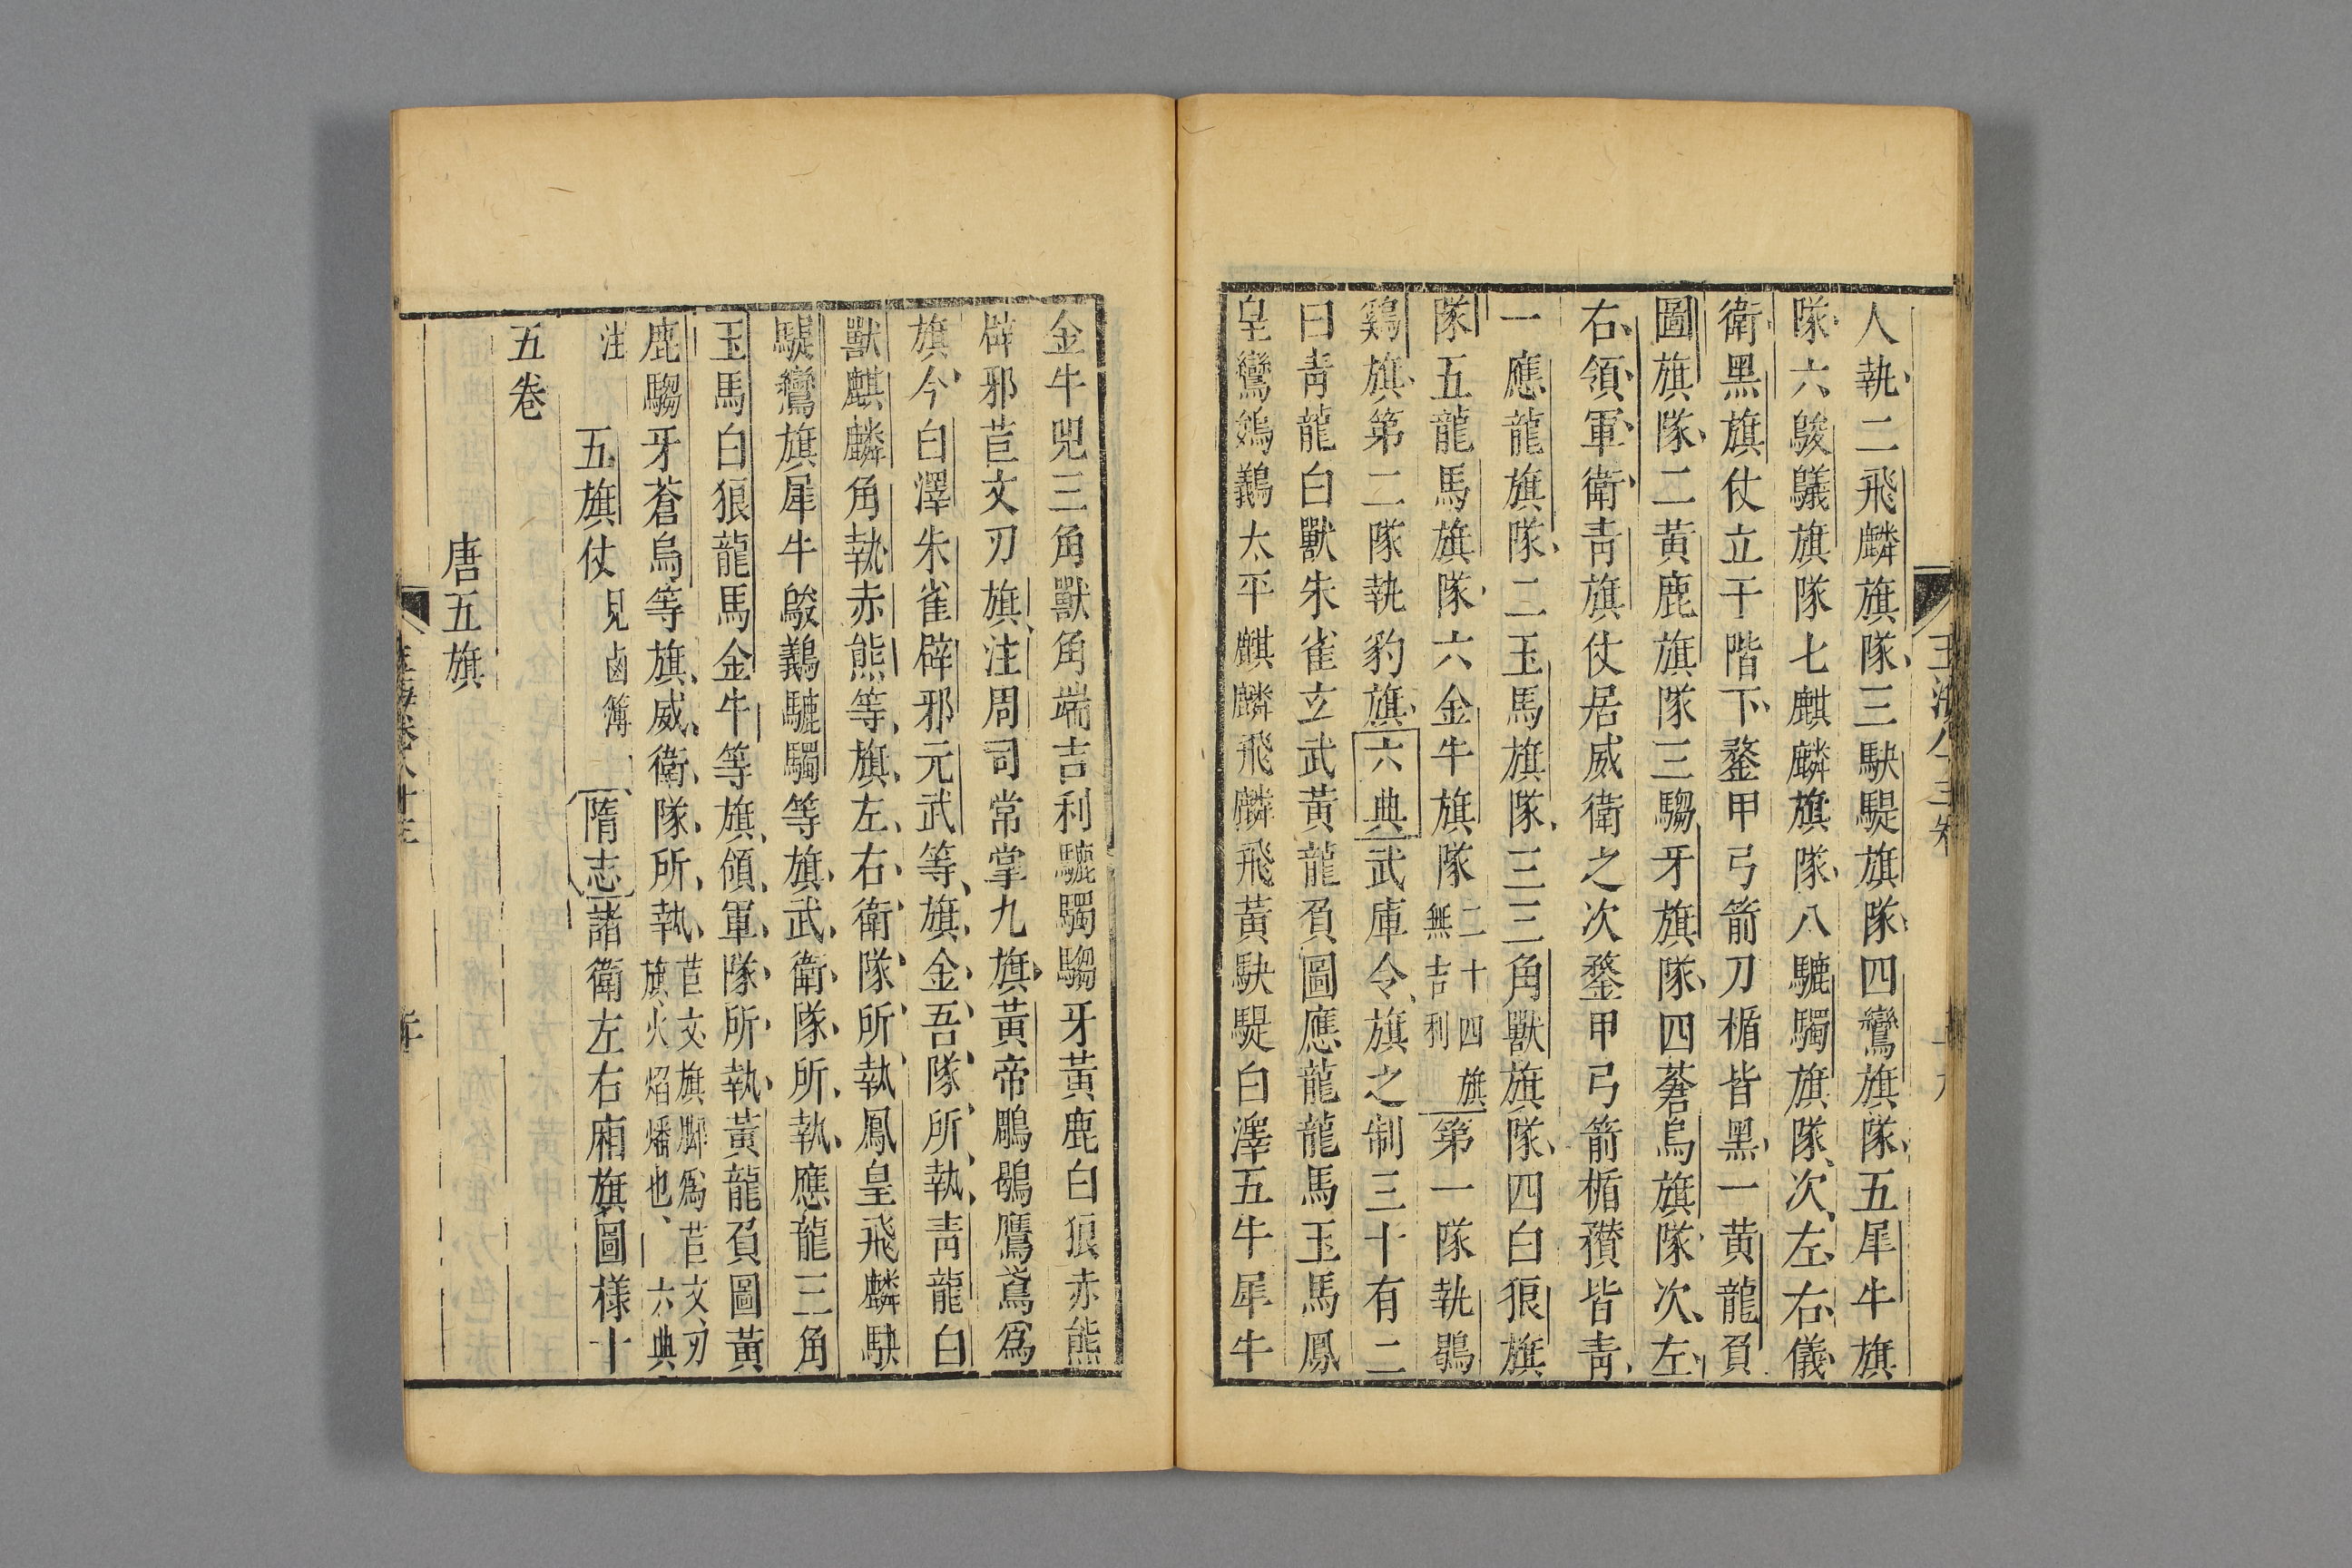 人執二飛麟旗隊三駃騠旗隊四鸞旗隊五犀牛旗
隊六鵔鸃旗隊七麒麟旗隊八騼䮷旗隊次左右儀
衛黑旗仗立于階下鍪甲弓箭刀楯皆黑一黃龍負
圖旗隊二黃鹿旗隊三騶牙旗隊四蒼烏旗隊次左
右領軍衛青旗仗居威衛之次鍪甲弓箭楯穳皆青
一應龍旗隊二玉馬旗隊三三角獸旗隊四白狼旗
隊五龍馬旗隊六金牛旗隊二十四旗無吉利第一隊執鶡
鷄旗第二隊執豹旗六典武庫令旗之制三十有二
曰青龍白獸朱雀玄武黃龍負圖應龍龍馬玉馬鳳
皇鸞鵔鸃太平麒麟飛麟飛黃駃騠白澤五牛犀牛
金牛兕三角獸角端吉利騼䮷騶牙黃鹿白狼赤熊
辟邪苣文刃旗注周司常掌九旗黃帝鵰鶡鷹鳶爲
旗今白澤朱雀辟邪元武等旗金吾隊所執青龍白
獸麒麟角執赤熊等旗左右衛隊所執鳳皇飛麟駃
騠鸞旗犀牛鵔鸃騼䮷等旗武衛隊所執應龍三角
玉馬白狼龍馬金牛等旗領軍隊所執黃龍負圖黃
鹿騶牙蒼烏等旗威衛隊所執苣文旗脚爲苣文刃旗火焰燔也六典
注
五旗仗見鹵簿隋志諸衛左右廂旗圖樣十
五卷
唐五旗